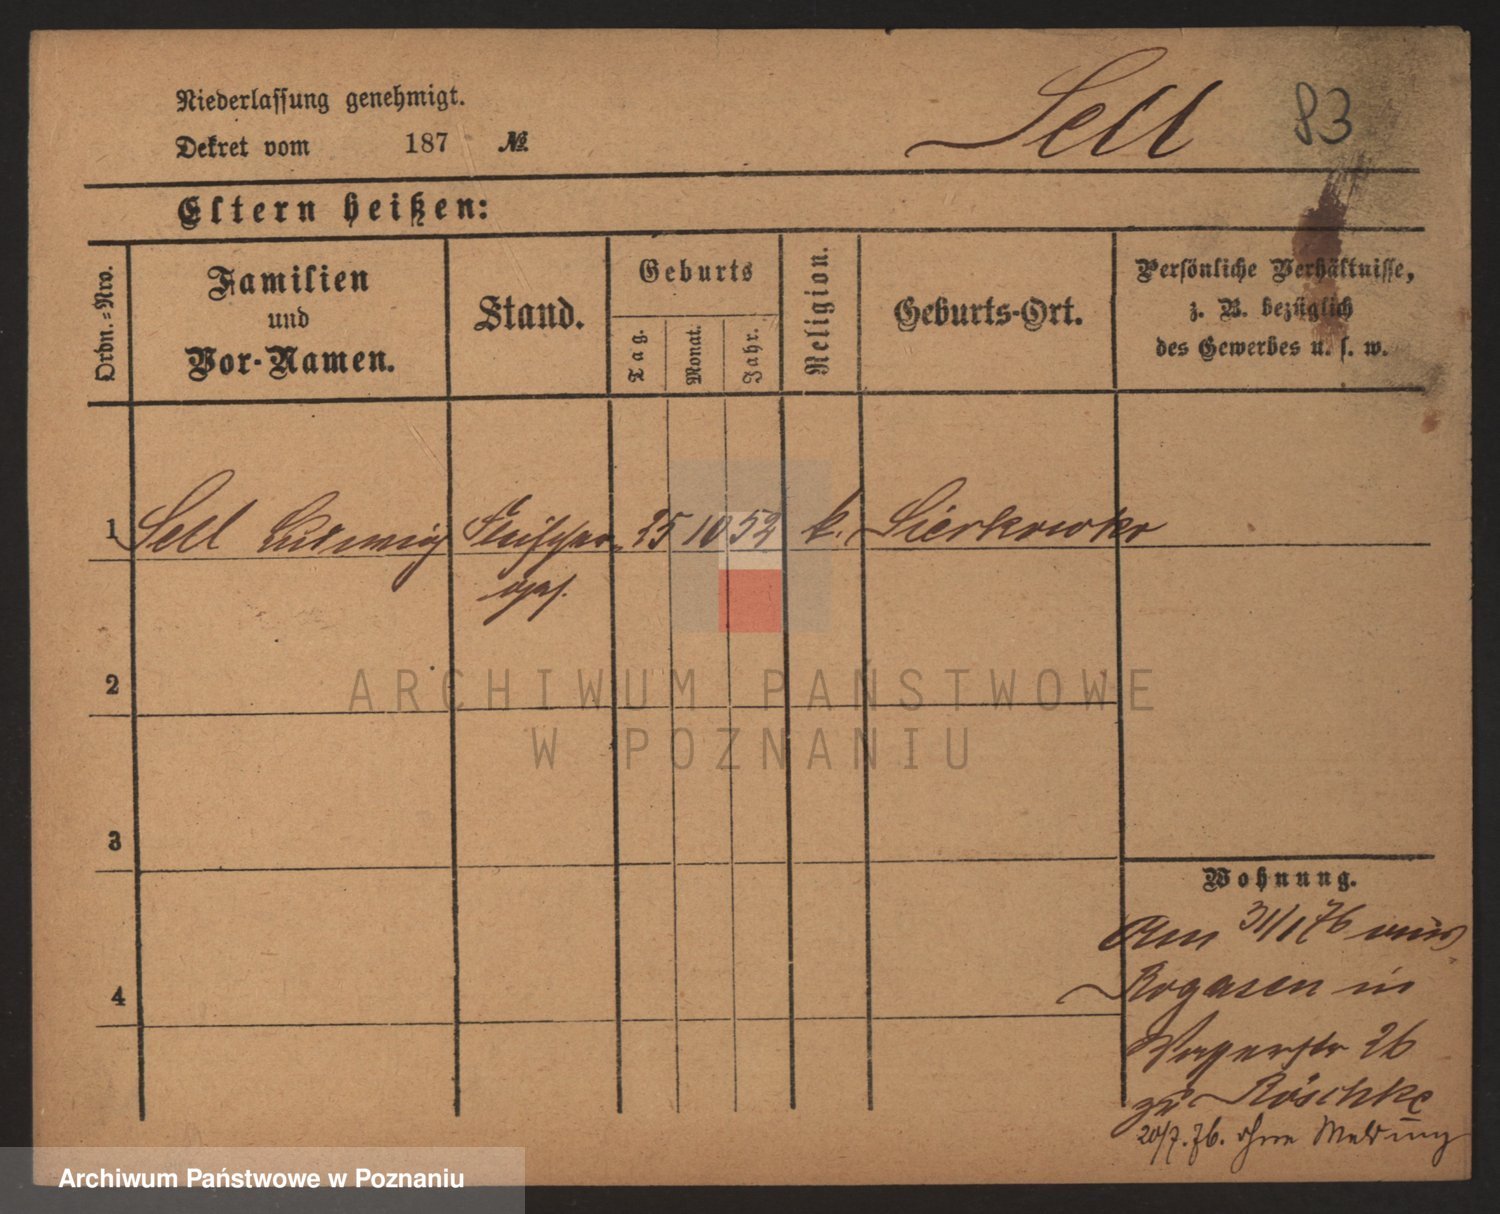 Niederlassung genehmigt.
Dekret vom 187 №.
Sell 83
Eltern heißen:
Ordn.=Nro.
Familien
und
Vor-Namen.
Stand.
Geburts
Tag.
Monat.
Jahr.
Religion.
Geburts-Ort.
Persönliche Verhältnisse,
z. B. bezüglich
des Gewerbes u. s. w.
1 Sell Ludwig Fleischer 25 10 52 k. Sierkowko
2
3
4
Wohnung.
Am 31/1 76 aus
Rogasen in
26
zu Röschke
20/7.76. ohne Meldung
ARCHIWUM PAŃSTWOWE
W POZNANIU
Archiwum Państwowe w Poznaniu